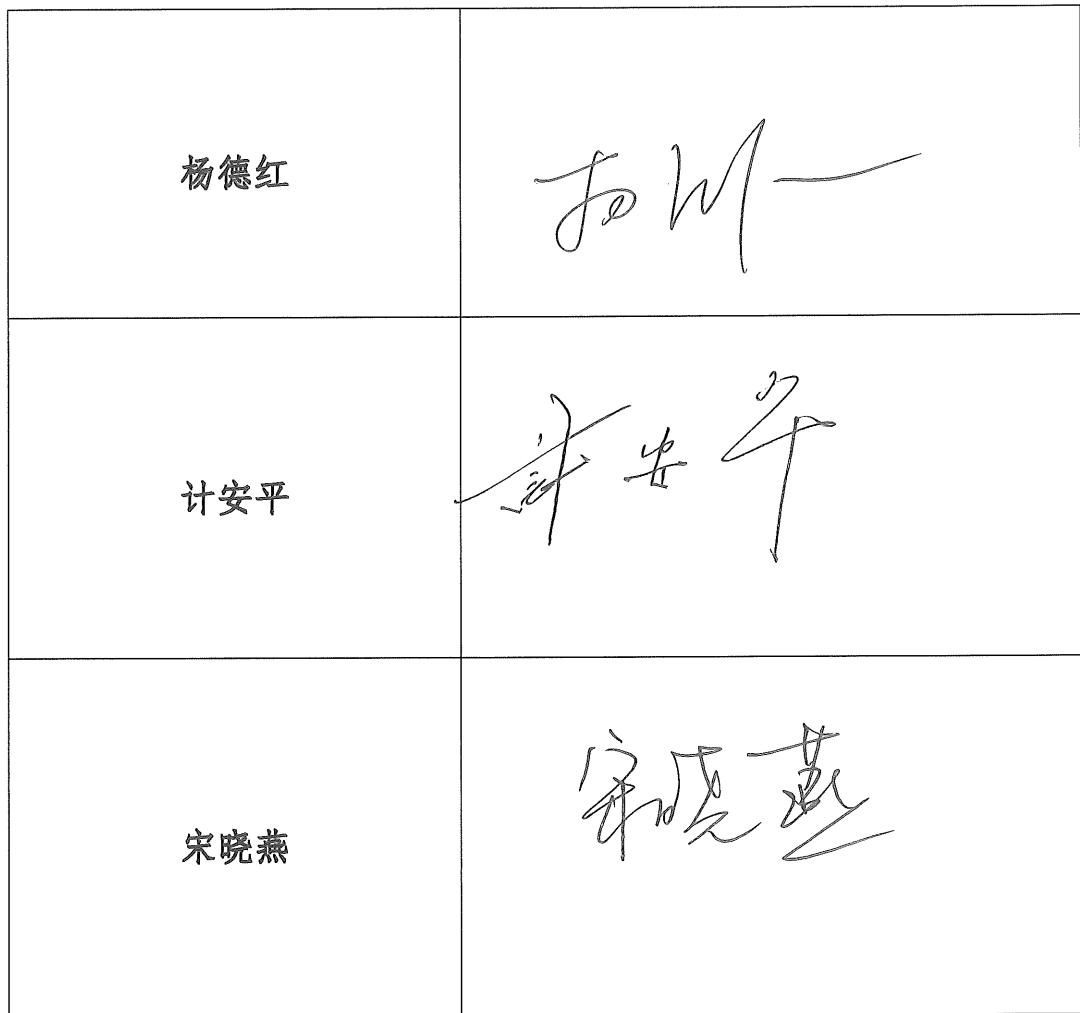 杨德红
计安平
計安平
宋晓燕
宋晓燕